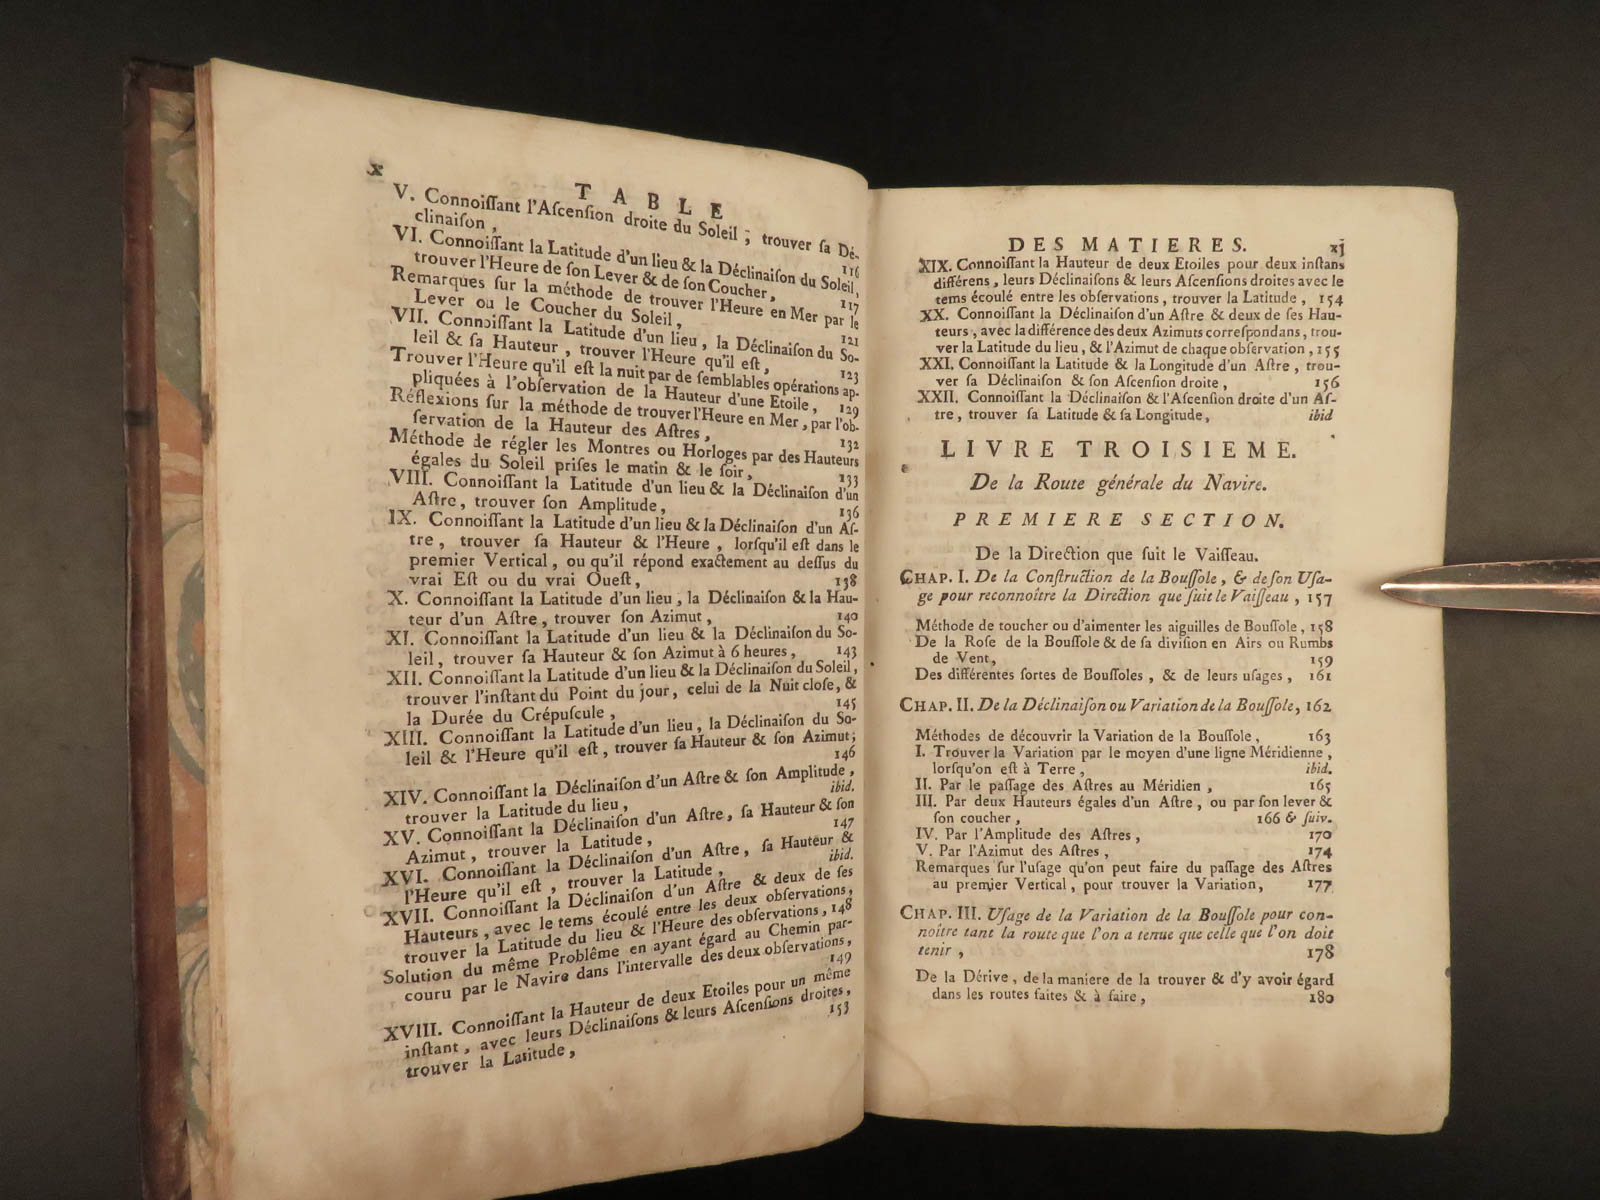 x
TABLE
V. Connoiſſant l'Aſcenſion droite du Soleil ; trouver ſa Dé-
clinaiſon, 116
VI. Connoiſſant la Latitude d'un lieu & la Déclinaiſon du Soleil,
trouver l'Heure de ſon Lever & de ſon Coucher, 117
Remarques ſur la méthode de trouver l'Heure en Mer par le
Lever ou le Coucher du Soleil, 121
VII. Connoiſſant la Latitude d'un lieu, la Déclinaiſon du So-
leil & ſa Hauteur, trouver l'Heure qu'il eſt, 123
Trouver l'Heure qu'il eſt la nuit par de ſemblables opérations ap-
pliquées à l'obſervation de la Hauteur d'une Etoile, 129
Réflexions ſur la méthode de trouver l'Heure en Mer, par l'ob-
ſervation de la Hauteur des Aſtres, 132
Méthode de régler les Montres ou Horloges par des Hauteurs
égales du Soleil priſes le matin & le ſoir, 133
VIII. Connoiſſant la Latitude d'un lieu & la Déclinaiſon d'un
Aſtre, trouver ſon Amplitude, 136
IX. Connoiſſant la Latitude d'un lieu & la Déclinaiſon d'un Aſ-
tre, trouver ſa Hauteur & l'Heure, lorſqu'il eſt dans le
premier Vertical, ou qu'il répond exactement au deſſus du
vrai Eſt ou du vrai Oueſt, 138
X. Connoiſſant la Latitude d'un lieu, la Déclinaiſon & la Hau-
teur d'un Aſtre, trouver ſon Azimut, 140
XI. Connoiſſant la Latitude d'un lieu & la Déclinaiſon du So-
leil, trouver ſa Hauteur & ſon Azimut à 6 heures, 143
XII. Connoiſſant la Latitude d'un lieu & la Déclinaiſon du Soleil,
trouver l'inſtant du Point du jour, celui de la Nuit cloſe, &
la Durée du Crépuſcule, 145
XIII. Connoiſſant la Latitude d'un lieu, la Déclinaiſon du So-
leil & l'Heure qu'il eſt, trouver ſa Hauteur & ſon Azimut; 146
XIV. Connoiſſant la Déclinaiſon d'un Aſtre & ſon Amplitude,
trouver la Latitude du lieu, ibid.
XV. Connoiſſant la Déclinaiſon d'un Aſtre, ſa Hauteur & ſon
Azimut, trouver la Latitude, 147
XVI. Connoiſſant la Déclinaiſon d'un Aſtre, ſa Hauteur &
l'Heure qu'il eſt, trouver la Latitude, ibid.
XVII. Connoiſſant la Déclinaiſon d'un Aſtre & deux de ſes
Hauteurs, avec le tems écoulé entre les deux obſervations,
trouver la Latitude du lieu & l'Heure des obſervations, 148
Solution du même Problême en ayant égard au Chemin par-
couru par le Navire dans l'intervalle des deux obſervations, 149
XVIII. Connoiſſant la Hauteur de deux Etoiles pour un même
inſtant, avec leurs Déclinaiſons & leurs Aſcenſions droites,
trouver la Latitude, 153
DES MATIERES. xj
XIX. Connoiſſant la Hauteur de deux Etoiles pour deux inſtans
différens, leurs Déclinaiſons & leurs Aſcenſions droites avec le
tems écoulé entre les obſervations, trouver la Latitude, 154
XX. Connoiſſant la Déclinaiſon d'un Aſtre & deux de ſes Hau-
teurs, avec la différence des deux Azimuts correſpondans, trou-
ver la Latitude du lieu, & l'Azimut de chaque obſervation, 155
XXI. Connoiſſant la Latitude & la Longitude d'un Aſtre, trou-
ver ſa Déclinaiſon & ſon Aſcenſion droite, 156
XXII. Connoiſſant la Déclinaiſon & l'Aſcenſion droite d'un Aſ-
tre, trouver ſa Latitude & ſa Longitude, ibid
LIVRE TROISIEME.
De la Route générale du Navire.
PREMIERE SECTION.
De la Direction que ſuit le Vaiſſeau.
CHAP. I. De la Conſtruction de la Bouſſole, & de ſon Uſa-
ge pour reconnoître la Direction que ſuit le Vaiſſeau, 157
Méthode de toucher ou d'aimenter les aiguilles de Bouſſole, 158
De la Roſe de la Bouſſole & de ſa diviſion en Airs ou Rumbs
de Vent, 159
Des différentes ſortes de Bouſſoles, & de leurs uſages, 161
CHAP. II. De la Déclinaiſon ou Variation de la Bouſſole, 162
Méthodes de découvrir la Variation de la Bouſſole, 163
I. Trouver la Variation par le moyen d'une ligne Méridienne,
lorſqu'on eſt à Terre, ibid.
II. Par le paſſage des Aſtres au Méridien, 165
III. Par deux Hauteurs égales d'un Aſtre, ou par ſon lever &
ſon coucher, 166 & ſuiv.
IV. Par l'Amplitude des Aſtres, 170
V. Par l'Azimut des Aſtres, 174
Remarques ſur l'uſage qu'on peut faire du paſſage des Aſtres
au premier Vertical, pour trouver la Variation, 177
CHAP. III. Uſage de la Variation de la Bouſſole pour con-
noître tant la route que l'on a tenue que celle que l'on doit
tenir, 178
De la Dérive, de la maniere de la trouver & d'y avoir égard
dans les routes faites & à faire, 180